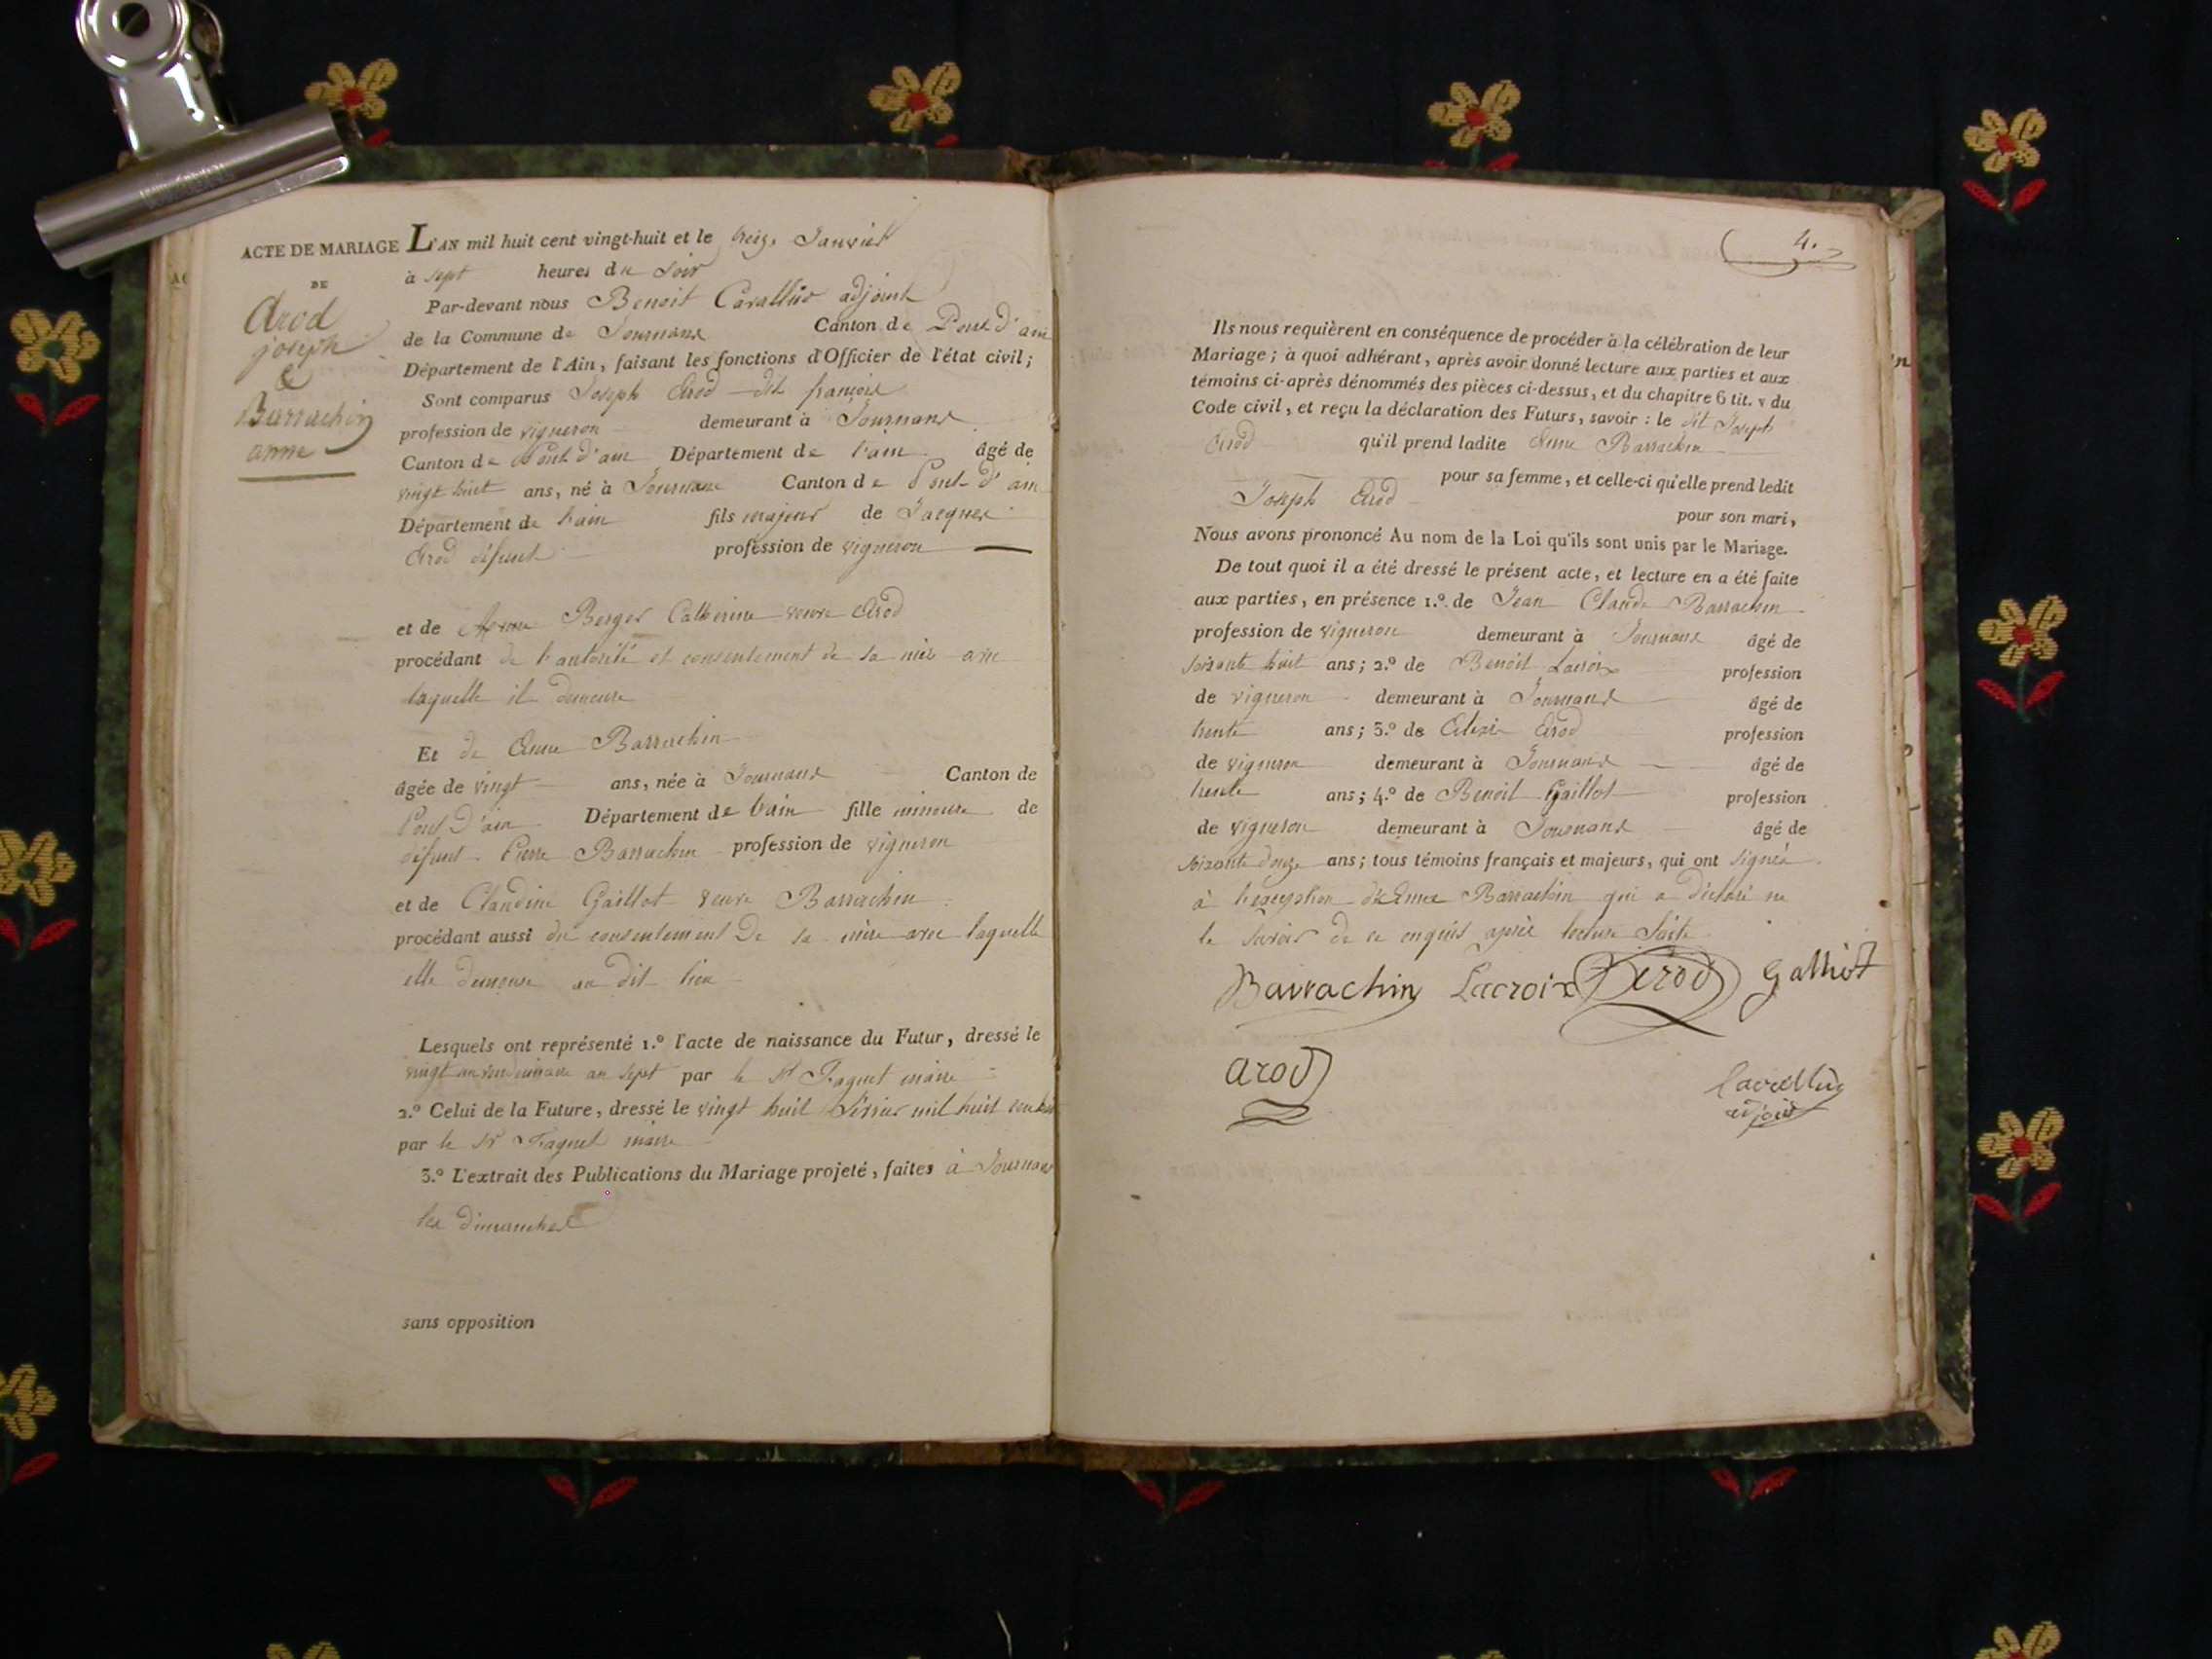 ACTE DE MARIAGE
DE
Arod
joseph
&
Barrachin
anne
L'AN mil huit cent vingt-huit et le treize Janvier
à sept heures du soir
Par-devant nous Benoit Cavallin adjoint
de la Commune de Journans Canton de Pont d'ain
Département de l'Ain, faisant les fonctions d'Officier de l'état civil;
Sont comparus Joseph Arod dit françois
profession de vigneron demeurant à Journans
Canton de Pont d'ain Département de l'ain âgé de
vingt huit ans, né à Journans Canton de Pont d'ain
Département de l'ain fils majeur de Jacques
Arod défunt profession de vigneron
et de Berger Catherine veuve Arod
procédant de l'autorité et consentement de sa mère avec
laquelle il demeure
Et de Anne Barrachin
âgée de vingt ans, née à Journans Canton de
Pont d'ain Département de l'ain fille mineure de
défunt Pierre Barrachin profession de vigneron
et de Claudine Gaillot veuve Barrachin
procédant aussi du consentement de sa mère avec laquelle
elle demeure au dit lieu
Lesquels ont représenté 1.º l'acte de naissance du Futur, dressé le
vingt an sept par le Sr Faguet maire
2.º Celui de la Future, dressé le vingt huit février mil huit cent huit
par le Sr Faguet maire
3.º L'extrait des Publications du Mariage projeté, faites à Journans
les dimanches
sans opposition
4.
Ils nous requièrent en conséquence de procéder à la célébration de leur
Mariage; à quoi adhérant, après avoir donné lecture aux parties et aux
témoins ci-après dénommés des pièces ci-dessus, et du chapitre 6 tit. v du
Code civil, et reçu la déclaration des Futurs, savoir : le dit Joseph
Arod qu'il prend ladite Anne Barrachin
pour sa femme, et celle-ci qu'elle prend ledit
Joseph Arod
pour son mari,
Nous avons prononcé Au nom de la Loi qu'ils sont unis par le Mariage.
De tout quoi il a été dressé le présent acte, et lecture en a été faite
aux parties, en présence 1.º de Jean Claude Barrachin
profession de vigneron demeurant à Journans âgé de
soixante huit ans; 2.º de Benoit Lacroix profession
de vigneron demeurant à Journans âgé de
trente ans; 3.º de Alexis Arod profession
de vigneron demeurant à Journans âgé de
trente ans; 4.º de Benoit Gaillot profession
de vigneron demeurant à Journans âgé de
soixante douze ans; tous témoins français et majeurs, qui ont signés
à l'exception d'Anne Barrachin qui a déclaré ne
le savoir de ce enquis après lecture faite
Barrachin Lacroix Arod galliot
arod
Cavallin
adjoint